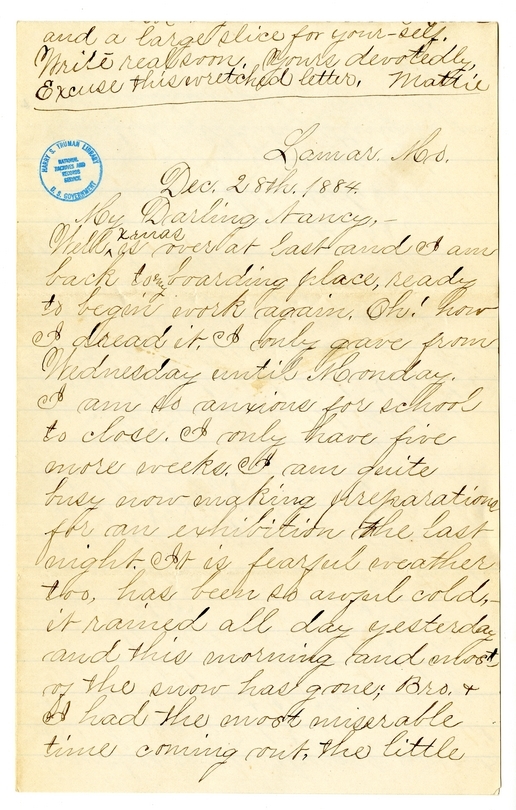 and a large slice for your-self.
Write real soon. Yours devotedly,
Excuse this wretched letter. Mattie
HARRY S. TRUMAN LIBRARY
NATIONAL
ARCHIVES AND
RECORDS
SERVICE
U.S. GOVERNMENT
Lamar. Mo.
Dec. 28th. 1884.
My Darling Nancy,-
Well, xmas is over at last and I am
back to my boarding place, ready
to begin work again. Oh! how
I dread it. I only gave from
Wednesday until Monday.
I am so anxious for school
to close. I only have five
more weeks. I am quite
busy now making preparations
for an exhibition the last
night. It is fearful weather
too, has been so awful cold,-
it rained all day yesterday
and this morning and most
of the snow has gone; Bro. &
I had the most miserable
time coming out, the little